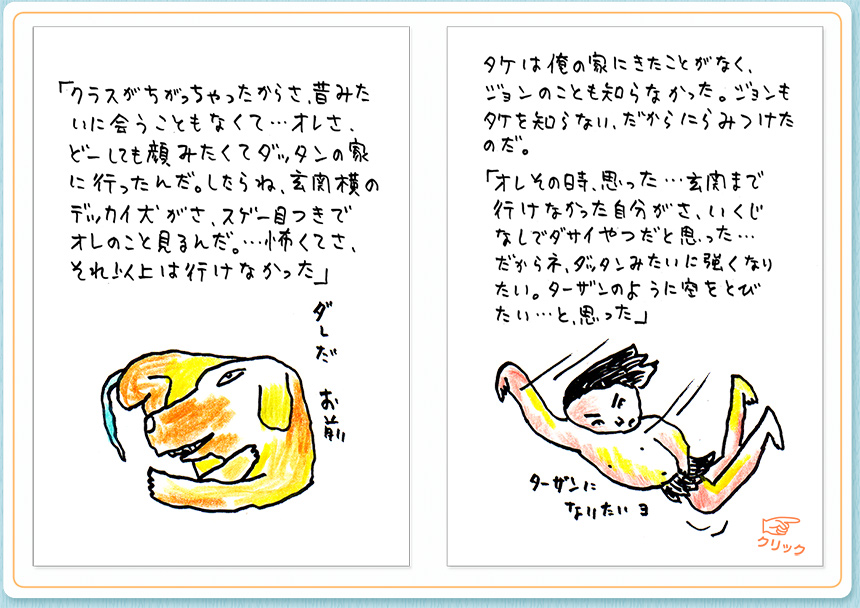 「クラスがちがっちゃったからさ、昔みた
いに会うこともなくて…オレさ、
どーしても顔みたくてダッタンの家
に行ったんだ。したらね、玄関横の
デッカイ犬がさ、スゲー目つきで
オレのこと見るんだ。…怖くてさ、
それ以上は行けなかった」
ダレだ
お前
タケは俺の家にきたことがなく、
ジョンのことも知らなかった。ジョンも
タケを知らない、だからにらみつけた
のだ。
「オレその時、思った…玄関まで
行けなかった自分がさ、いくじ
なしでダサイやつだと思った…
だからネ、ダッタンみたいに強くなり
たい。ターザンのように空をとび
たい…と、思った」
ターザンに
なりたいヨ
クリック